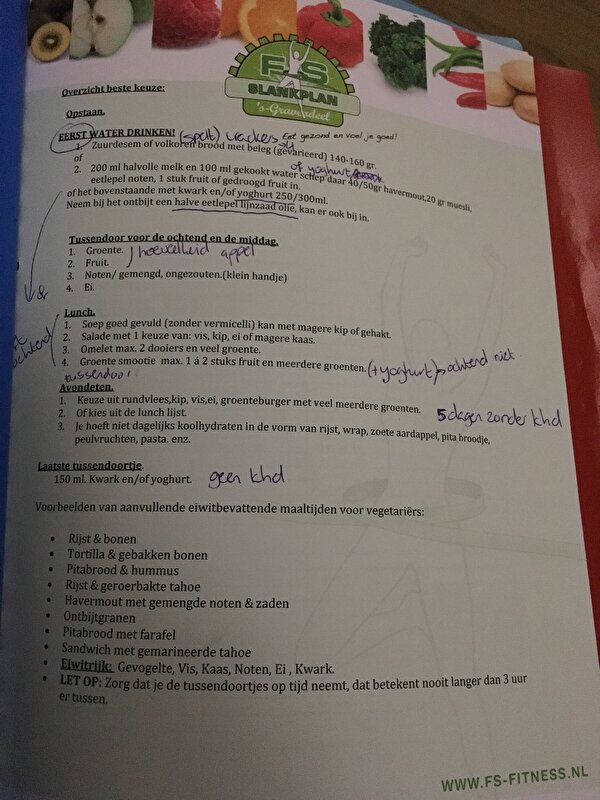 FS
SLANKPLAN
's-Gravendeel
Overzicht beste keuze:
Opstaan.
EERST WATER DRINKEN! (spelt) crackers Eet gezond en voel je goed!
1. Zuurdesem of volkoren brood met beleg (gevarieerd) 140-160 gr.
of
2. 200 ml halvolle melk en 100 ml gekookt water schep daar 40/50gr havermout,20 gr muesli,
of yoghurt
eetlepel noten, 1 stuk fruit of gedroogd fruit in.
of het bovenstaande met kwark en/of yoghurt 250/300ml.
Neem bij het ontbijt een halve eetlepel lijnzaad olie, kan er ook bij in.
Tussendoor voor de ochtend en de middag.
1. Groente.
2. Fruit.
hoeveelheid appel
3. Noten/ gemengd, ongezouten.(klein handje)
4. Ei.
Lunch.
1. Soep goed gevuld (zonder vermicelli) kan met magere kip of gehakt.
2. Salade met 1 keuze van: vis, kip, ei of magere kaas.
3. Omelet max. 2 dooiers en veel groente.
4. Groente smootie max. 1 á 2 stuks fruit en meerdere groenten. (+yoghurt) ochtend niet
tussendoor!
Avondeten.
1. Keuze uit rundvlees,kip, vis,ei, groenteburger met veel meerdere groenten.
2. Of kies uit de lunch lijst.
5 dagen zonder khd
3. Je hoeft niet dagelijks koolhydraten in de vorm van rijst, wrap, zoete aardappel, pita broodje,
peulvruchten, pasta. enz.
Laatste tussendoortje.
150 ml. Kwark en/of yoghurt. geen khd
Voorbeelden van aanvullende eiwitbevattende maaltijden voor vegetariërs:
• Rijst & bonen
• Tortilla & gebakken bonen
• Pitabrood & hummus
• Rijst & geroerbakte tahoe
• Havermout met gemengde noten & zaden
• Ontbijtgranen
• Pitabrood met farafel
• Sandwich met gemarineerde tahoe
• Eiwitrijk: Gevogelte, Vis, Kaas, Noten, Ei , Kwark.
• LET OP: Zorg dat je de tussendoortjes op tijd neemt, dat betekent nooit langer dan 3 uur
er tussen.
WWW.FS-FITNESS.NL